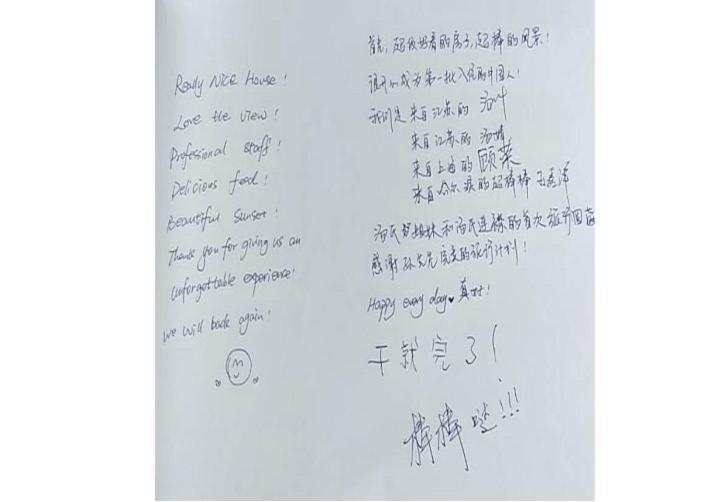 Really Nice House!
Love the view!
Professional staff!
Delicious food!
Beautiful Sunset!
Thank you for giving us an
unforgettable experience!
We will back again!
首先，超级好看的房子，超棒的风景！
很开心成为第一批入住的中国人！
我们是来自江苏的 汤叶
来自江苏的 汤婧
来自上海的 顾莱
来自哈尔滨的超棒棒 王
汤氏 姐妹和汤氏连襟的首次旅行
感谢孙先生完美的旅行计划！
Happy every day
干就完了！
棒棒哒!!!